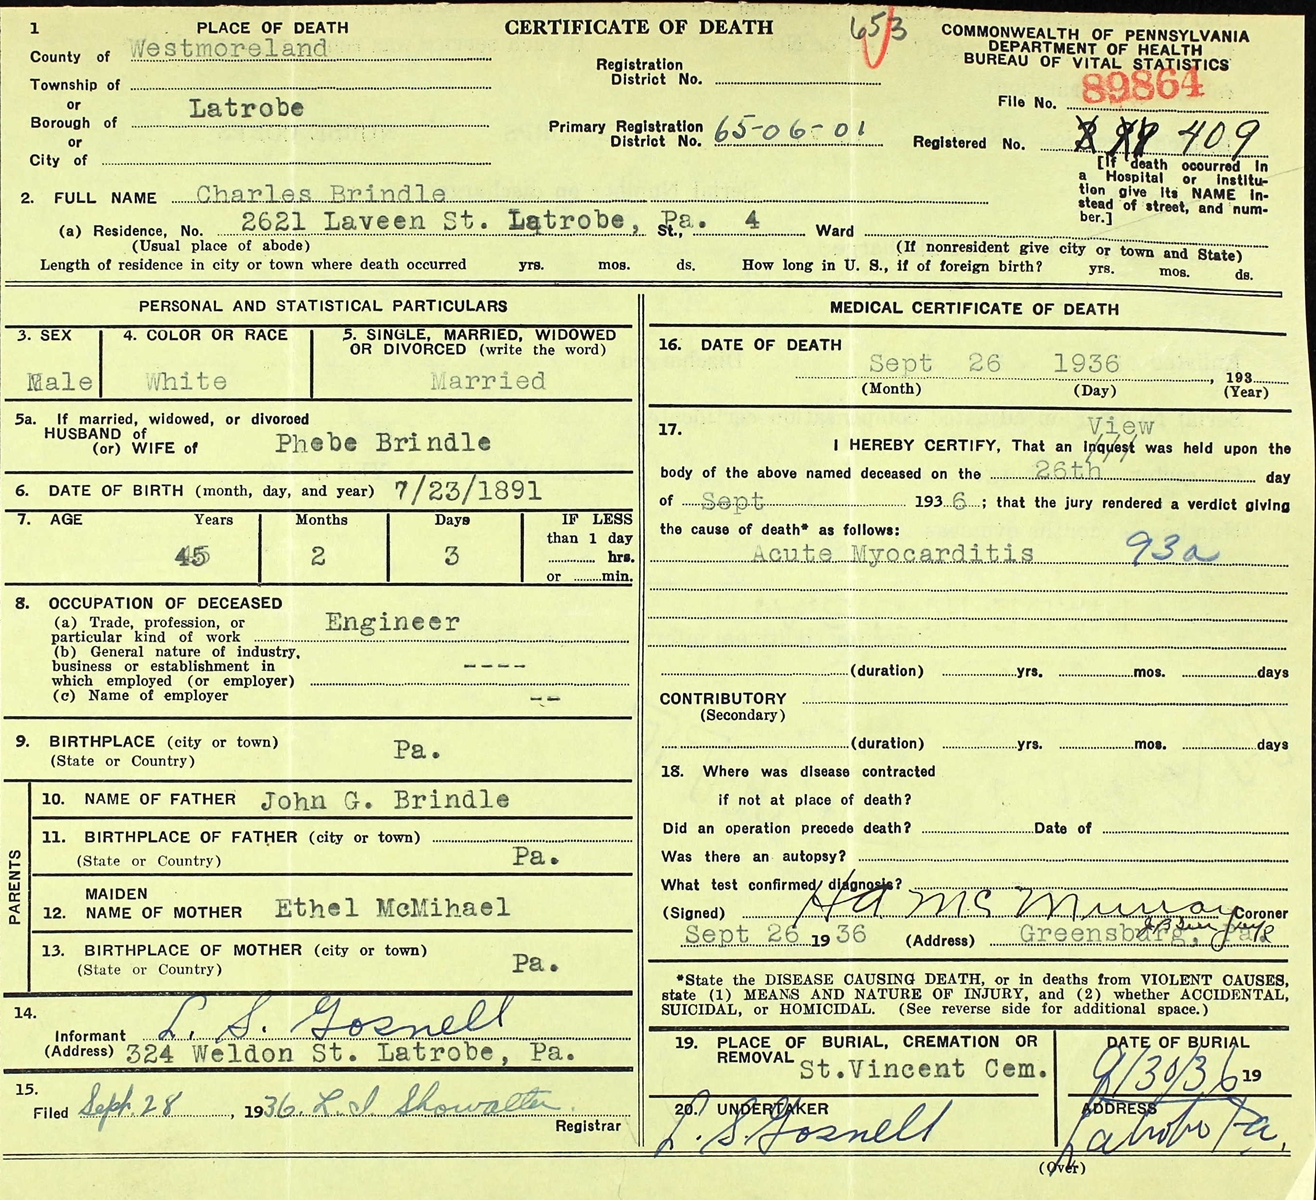 1 PLACE OF DEATH
CERTIFICATE OF DEATH
653
COMMONWEALTH OF PENNSYLVANIA
DEPARTMENT OF HEALTH
BUREAU OF VITAL STATISTICS
County of Westmoreland
Township of
or
Borough of Latrobe
or
City of
Registration
District No.
Primary Registration
District No. 65-06-01
File No. 89864
Registered No. 409
[If death occurred in
a Hospital or institu-
tion give its NAME in-
stead of street, and num-
ber.]
2. FULL NAME Charles Brindle
(a) Residence, No. 2621 Laveen St. Latrobe, Pa. St., 4 Ward
(Usual place of abode) (If nonresident give city or town and State)
Length of residence in city or town where death occurred yrs. mos. ds. How long in U. S., if of foreign birth? yrs. mos. ds.
PERSONAL AND STATISTICAL PARTICULARS
3. SEX
Male
4. COLOR OR RACE
White
5. SINGLE, MARRIED, WIDOWED
OR DIVORCED (write the word)
Married
5a. If married, widowed, or divorced
HUSBAND of
(or) WIFE of Phebe Brindle
6. DATE OF BIRTH (month, day, and year) 7/23/1891
7. AGE Years Months Days IF LESS
than 1 day
hrs.
or min.
45 2 3
8. OCCUPATION OF DECEASED
(a) Trade, profession, or
particular kind of work Engineer
(b) General nature of industry,
business or establishment in
which employed (or employer) ----
(c) Name of employer --
9. BIRTHPLACE (city or town)
(State or Country) Pa.
PARENTS
10. NAME OF FATHER John G. Brindle
11. BIRTHPLACE OF FATHER (city or town)
(State or Country) Pa.
MAIDEN
12. NAME OF MOTHER Ethel McMihael
13. BIRTHPLACE OF MOTHER (city or town)
(State or Country) Pa.
14.
Informant L. S. Gosnell
(Address) 324 Weldon St. Latrobe, Pa.
15.
Filed Sept. 28, 1936. L. I Showalter
Registrar
MEDICAL CERTIFICATE OF DEATH
16. DATE OF DEATH
Sept 26 1936, 193
(Month) (Day) (Year)
17. View
I HEREBY CERTIFY, That an Inquest was held upon the
body of the above named deceased on the 26th day
of Sept 1936; that the jury rendered a verdict giving
the cause of death* as follows:
Acute Myocarditis 93a
(duration) yrs. mos. days
CONTRIBUTORY
(Secondary)
(duration) yrs. mos. days
18. Where was disease contracted
if not at place of death?
Did an operation precede death? Date of
Was there an autopsy?
What test confirmed diagnosis?
(Signed) H A McMurray Coroner
Sept 26 1936 (Address) Greensburg, Pa.
*State the DISEASE CAUSING DEATH, or in deaths from VIOLENT CAUSES,
state (1) MEANS AND NATURE OF INJURY, and (2) whether ACCIDENTAL,
SUICIDAL, or HOMICIDAL. (See reverse side for additional space.)
19. PLACE OF BURIAL, CREMATION OR
REMOVAL St.Vincent Cem.
DATE OF BURIAL
9/30/36 19
20. UNDERTAKER
L. S. Gosnell
ADDRESS
Latrobe Pa.
(Over)